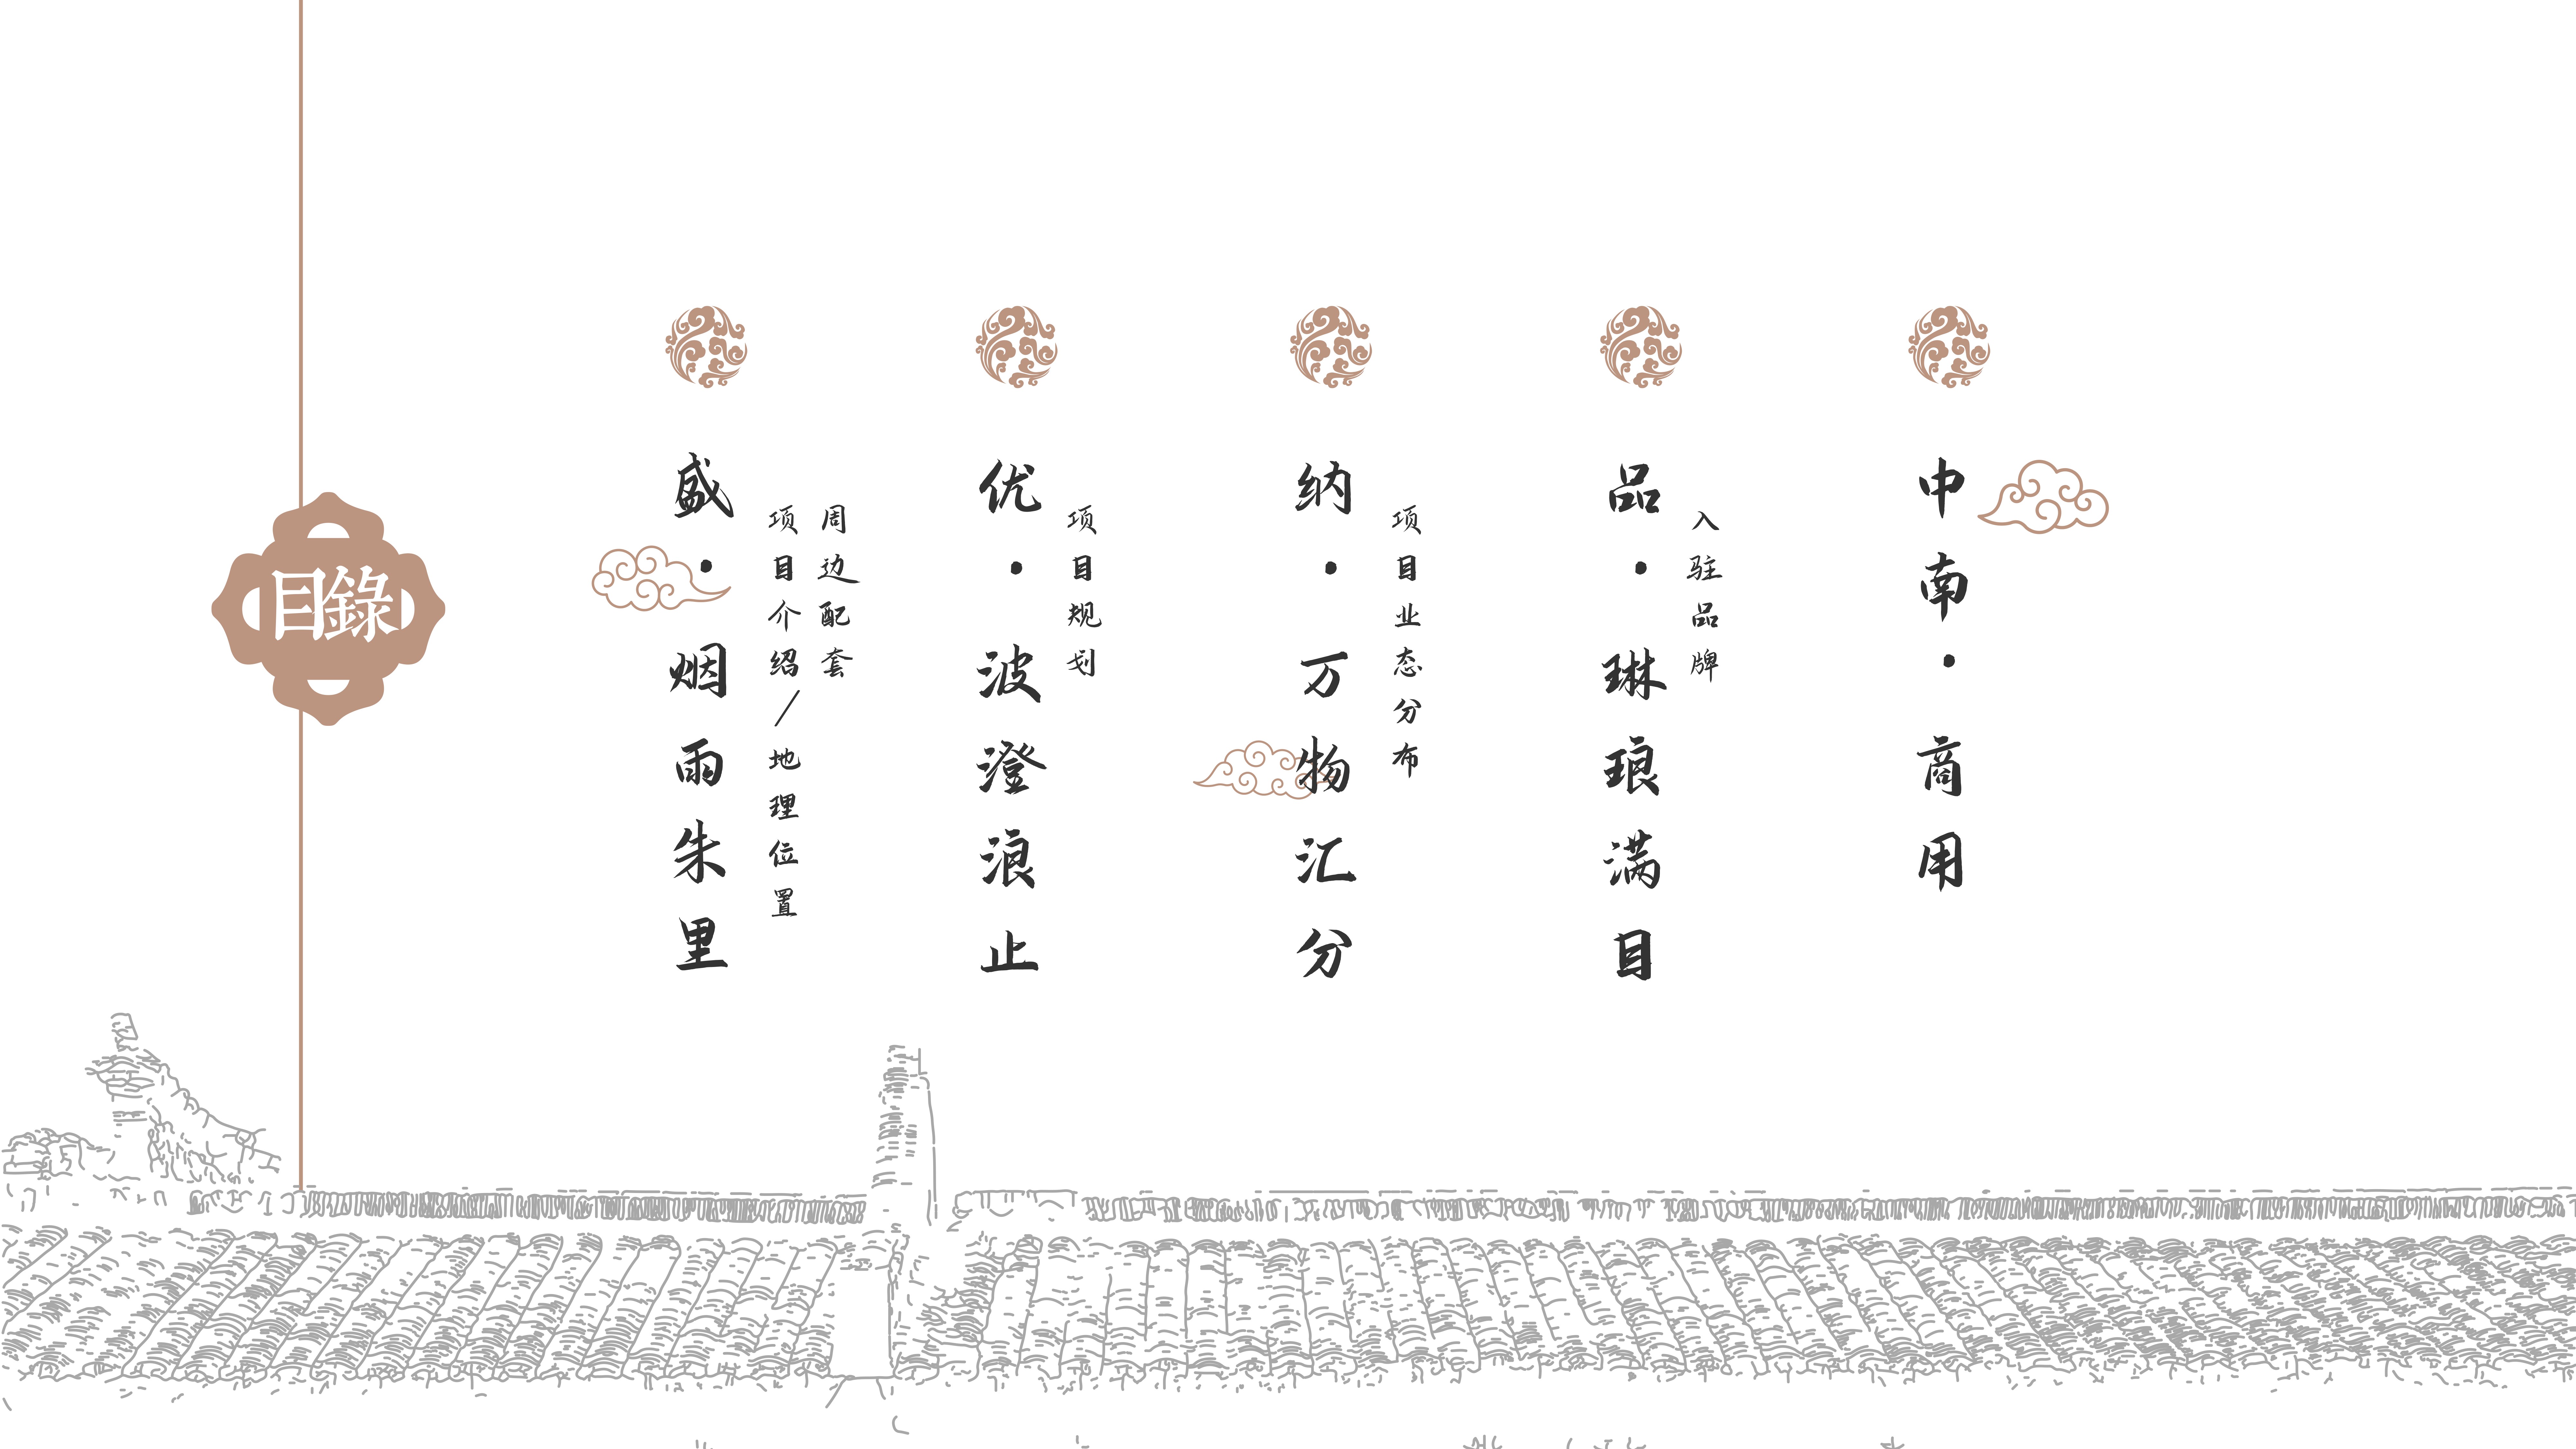 目錄
盛·烟雨朱里
项目介绍/地理位置
周边配套
优·波澄浪止
项目规划
纳·万物汇分
项目业态分布
品·琳琅满目
入驻品牌
中南·商用